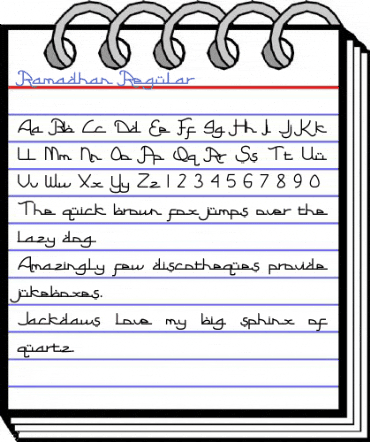 Ramadhan Regular
Aa Bb Cc Dd Ee Ff Gg Hh I Jj Kk
Ll Mm Nn Oo Pp Qq Rr Ss Tt Uu
Vv Ww Xx Yy Zz 1 2 3 4 5 6 7 8 9 0
The quick brown fox jumps over the
Lazy dog.
Amazingly few discotheques provide
jukeboxes.
Jackdaws Love my big sphinx of
quartz